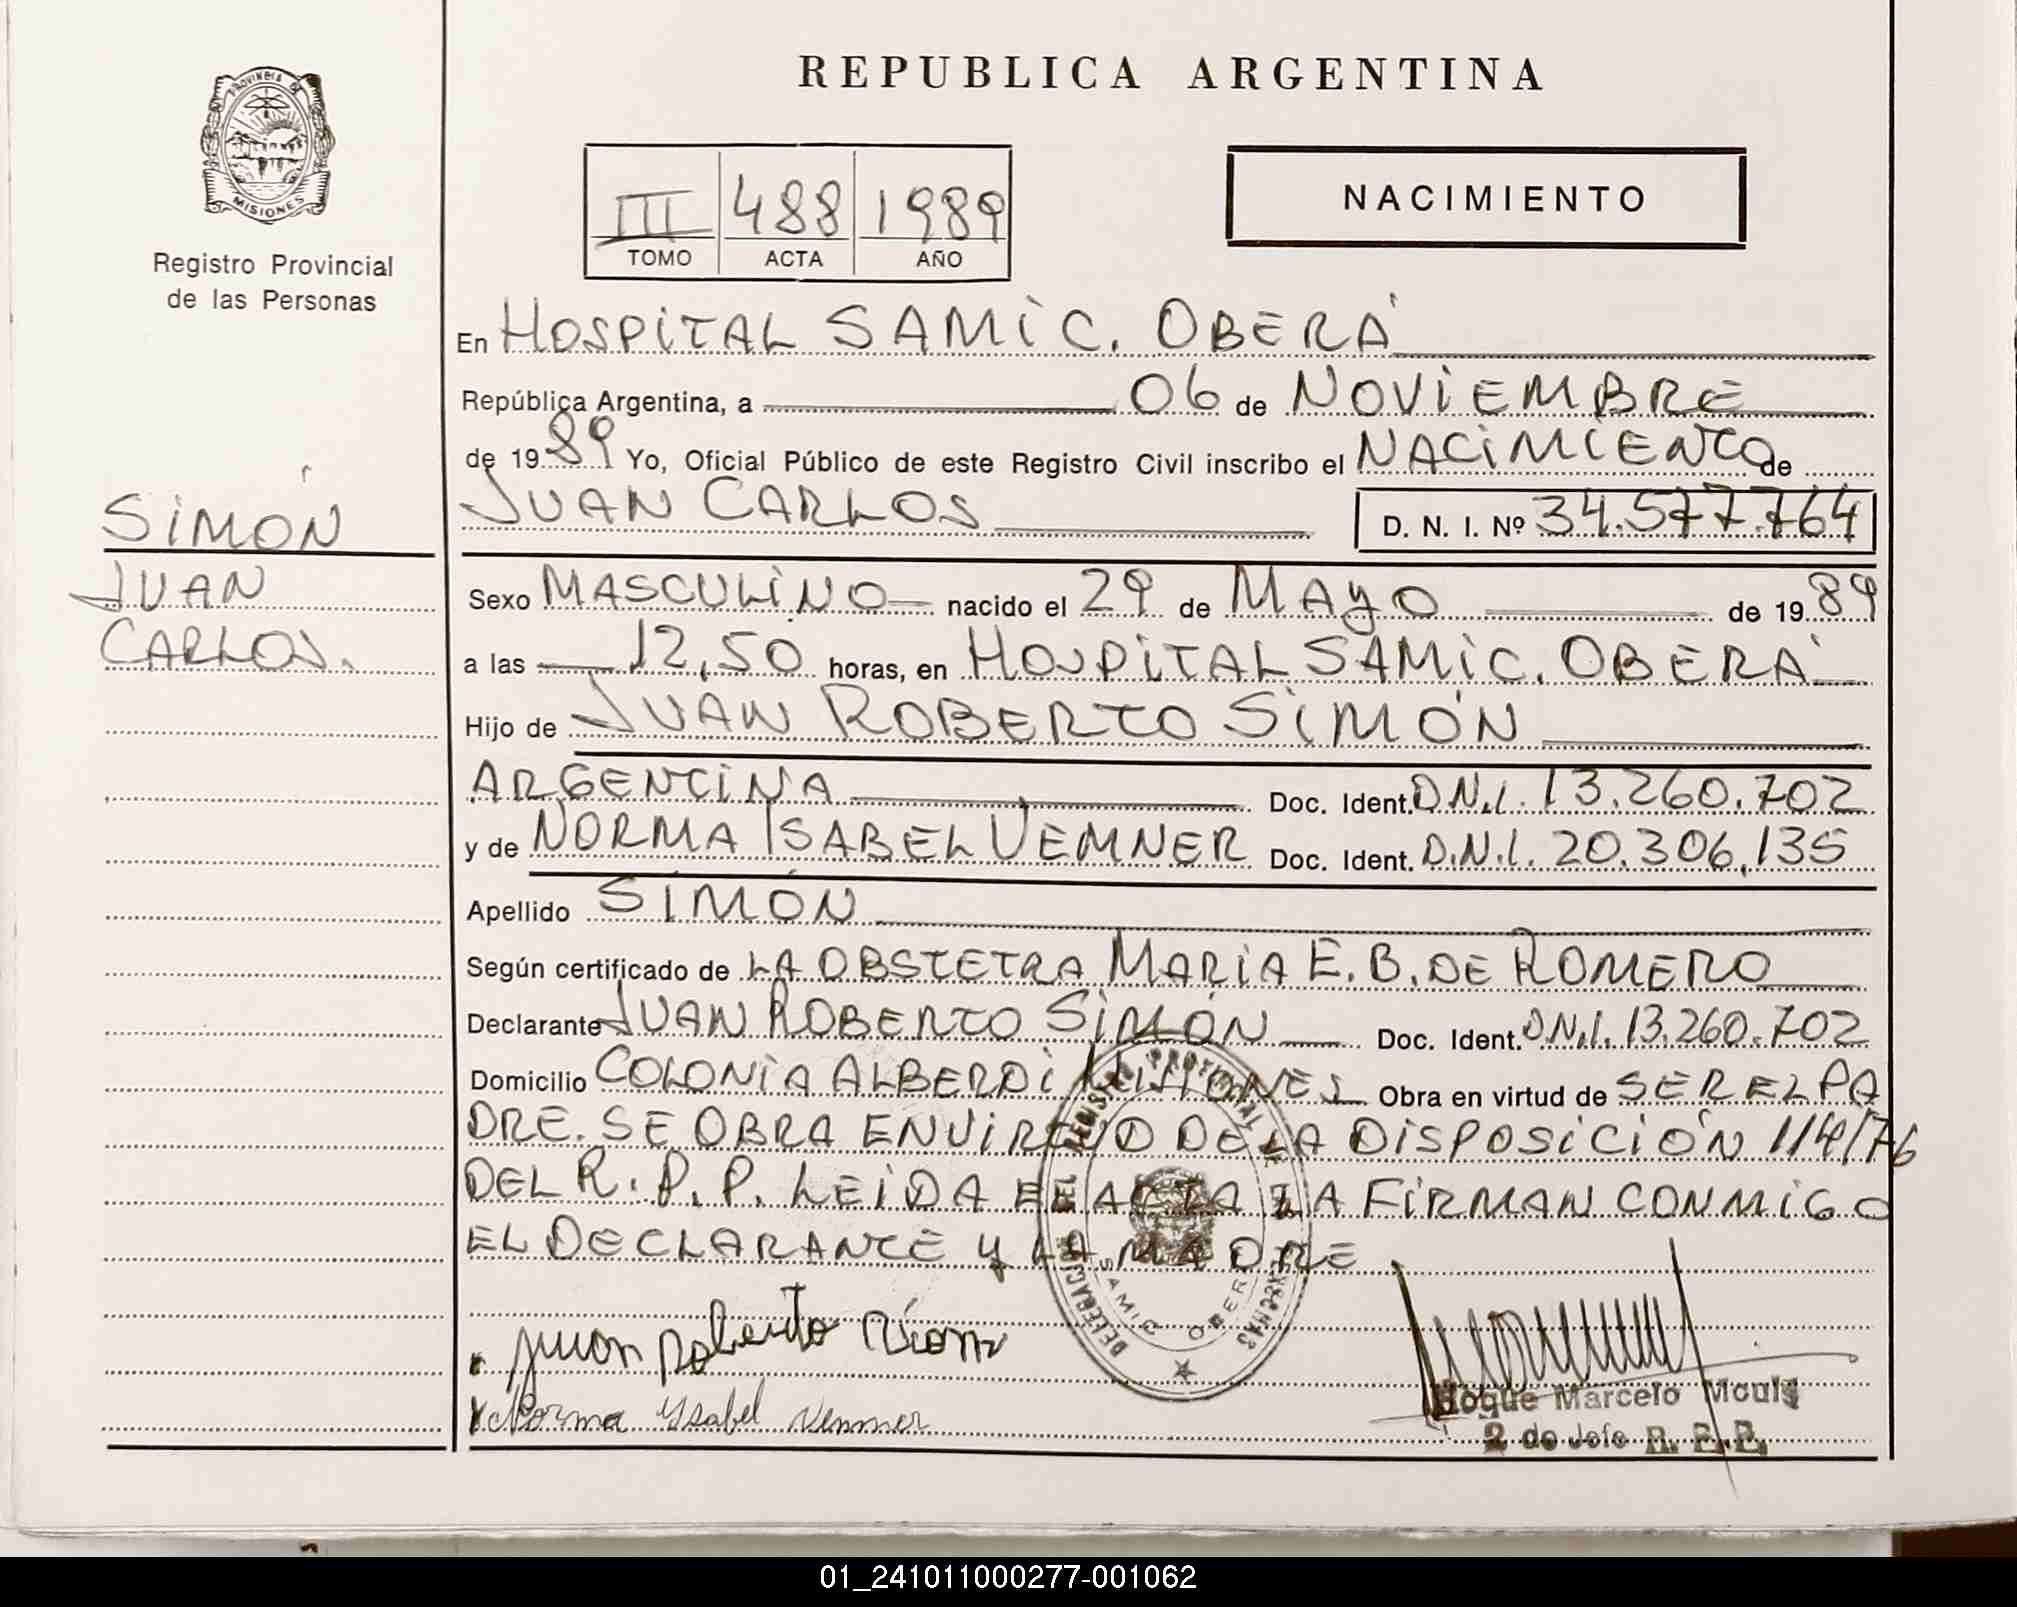 REPUBLICA ARGENTINA
PROVINCIA DE
MISIONES
Registro Provincial
de las Personas
NACIMIENTO
III 488 1989
TOMO ACTA AÑO
En HOSPITAL SAMIC. OBERÁ
República Argentina, a 06 de NOVIEMBRE
de 1989 Yo, Oficial Público de este Registro Civil inscribo el NACIMIENTO de
JUAN CARLOS D. N. I. Nº 34.577.764
SIMÓN
JUAN
CARLOS.
Sexo MASCULINO nacido el 29 de MAYO de 1989
a las 12,50 horas, en HOSPITAL SAMIC. OBERÁ
Hijo de JUAN ROBERTO SIMÓN
ARGENTINA Doc. Ident. D.N.I. 13.260.702
y de NORMA ISABEL VEMNER Doc. Ident. D.N.I. 20.306.135
Apellido SIMÓN
Según certificado de LA OBSTETRA MARIA E. B. DE ROMERO
Declarante JUAN ROBERTO SIMÓN Doc. Ident. D.N.I. 13.260.702
Domicilio COLONIA ALBERDI MISIONES Obra en virtud de SER EL PA
DRE. SE OBRA EN VIRTUD DE LA DISPOSICIÓN 114/76
DEL R. P. P. LEIDA EL ACTA LA FIRMAN CONMIGO
EL DECLARANTE Y LA MADRE
DELEGACION DEL REGISTRO PROVINCIAL DE LAS PERSONAS
SAMIC OBERA
Juan Roberto Simon
Norma Ysabel Vemner
Roque Marcelo
2 do Jefe R. P. P.
01_241011000277-001062